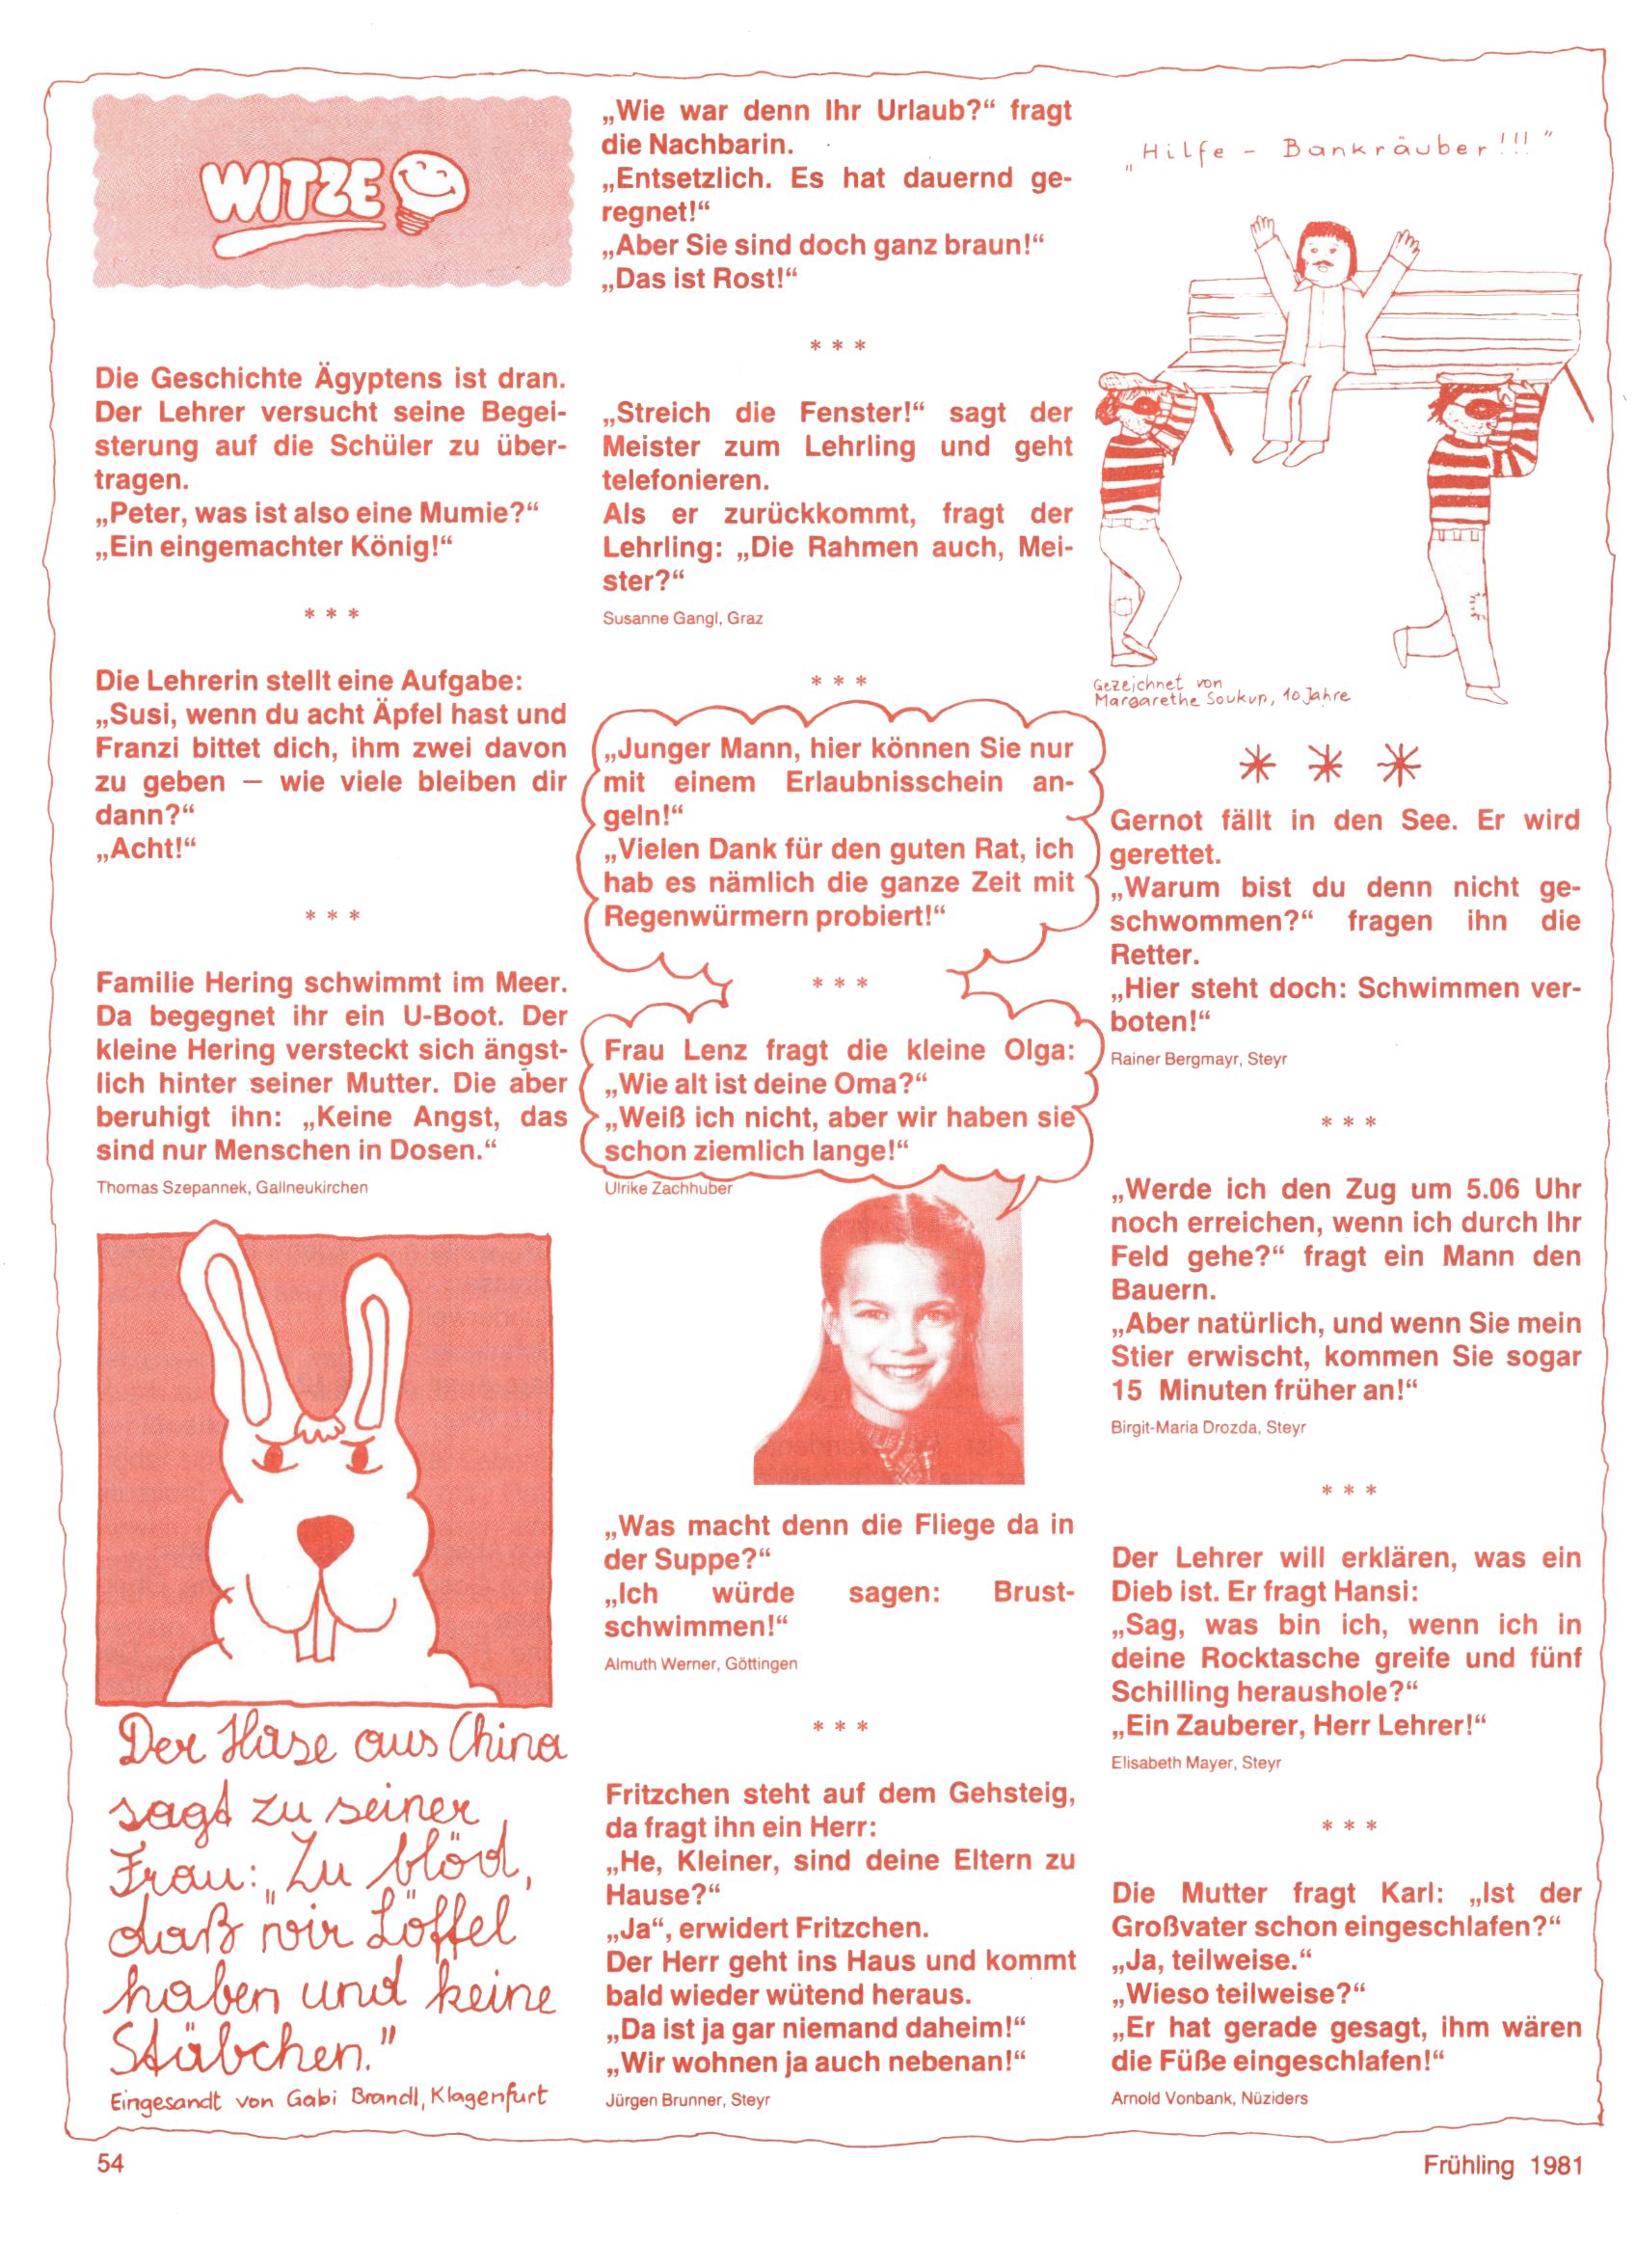 WITZE
Die Geschichte Ägyptens ist dran.
Der Lehrer versucht seine Begei-
sterung auf die Schüler zu über-
tragen.
„Peter, was ist also eine Mumie?“
„Ein eingemachter König!“
* * *
Die Lehrerin stellt eine Aufgabe:
„Susi, wenn du acht Äpfel hast und
Franzi bittet dich, ihm zwei davon
zu geben — wie viele bleiben dir
dann?“
„Acht!“
* * *
Familie Hering schwimmt im Meer.
Da begegnet ihr ein U-Boot. Der
kleine Hering versteckt sich ängst-
lich hinter seiner Mutter. Die aber
beruhigt ihn: „Keine Angst, das
sind nur Menschen in Dosen.“
Thomas Szepannek, Gallneukirchen
Der Hase aus China
sagt zu seiner
Frau: „Zu blöd,
daß wir Löffel
haben und keine
Stäbchen.”
Eingesandt von Gabi Brandl, Klagenfurt
„Wie war denn Ihr Urlaub?“ fragt
die Nachbarin.
„Entsetzlich. Es hat dauernd ge-
regnet!“
„Aber Sie sind doch ganz braun!“
„Das ist Rost!“
* * *
„Streich die Fenster!“ sagt der
Meister zum Lehrling und geht
telefonieren.
Als er zurückkommt, fragt der
Lehrling: „Die Rahmen auch, Mei-
ster?“
Susanne Gangl, Graz
* * *
„Junger Mann, hier können Sie nur
mit einem Erlaubnisschein an-
geln!“
„Vielen Dank für den guten Rat, ich
hab es nämlich die ganze Zeit mit
Regenwürmern probiert!“
* * *
Frau Lenz fragt die kleine Olga:
„Wie alt ist deine Oma?“
„Weiß ich nicht, aber wir haben sie
schon ziemlich lange!“
Ulrike Zachhuber
„Was macht denn die Fliege da in
der Suppe?“
„Ich würde sagen: Brust-
schwimmen!“
Almuth Werner, Göttingen
* * *
Fritzchen steht auf dem Gehsteig,
da fragt ihn ein Herr:
„He, Kleiner, sind deine Eltern zu
Hause?“
„Ja“, erwidert Fritzchen.
Der Herr geht ins Haus und kommt
bald wieder wütend heraus.
„Da ist ja gar niemand daheim!“
„Wir wohnen ja auch nebenan!“
Jürgen Brunner, Steyr
„Hilfe - Bankräuber!!!”
Gezeichnet von
Margarethe Soukup, 10 Jahre
* * *
Gernot fällt in den See. Er wird
gerettet.
„Warum bist du denn nicht ge-
schwommen?“ fragen ihn die
Retter.
„Hier steht doch: Schwimmen ver-
boten!“
Rainer Bergmayr, Steyr
* * *
„Werde ich den Zug um 5.06 Uhr
noch erreichen, wenn ich durch Ihr
Feld gehe?“ fragt ein Mann den
Bauern.
„Aber natürlich, und wenn Sie mein
Stier erwischt, kommen Sie sogar
15 Minuten früher an!“
Birgit-Maria Drozda, Steyr
* * *
Der Lehrer will erklären, was ein
Dieb ist. Er fragt Hansi:
„Sag, was bin ich, wenn ich in
deine Rocktasche greife und fünf
Schilling heraushole?“
„Ein Zauberer, Herr Lehrer!“
Elisabeth Mayer, Steyr
* * *
Die Mutter fragt Karl: „Ist der
Großvater schon eingeschlafen?“
„Ja, teilweise.“
„Wieso teilweise?“
„Er hat gerade gesagt, ihm wären
die Füße eingeschlafen!“
Arnold Vonbank, Nüziders
54
Frühling 1981